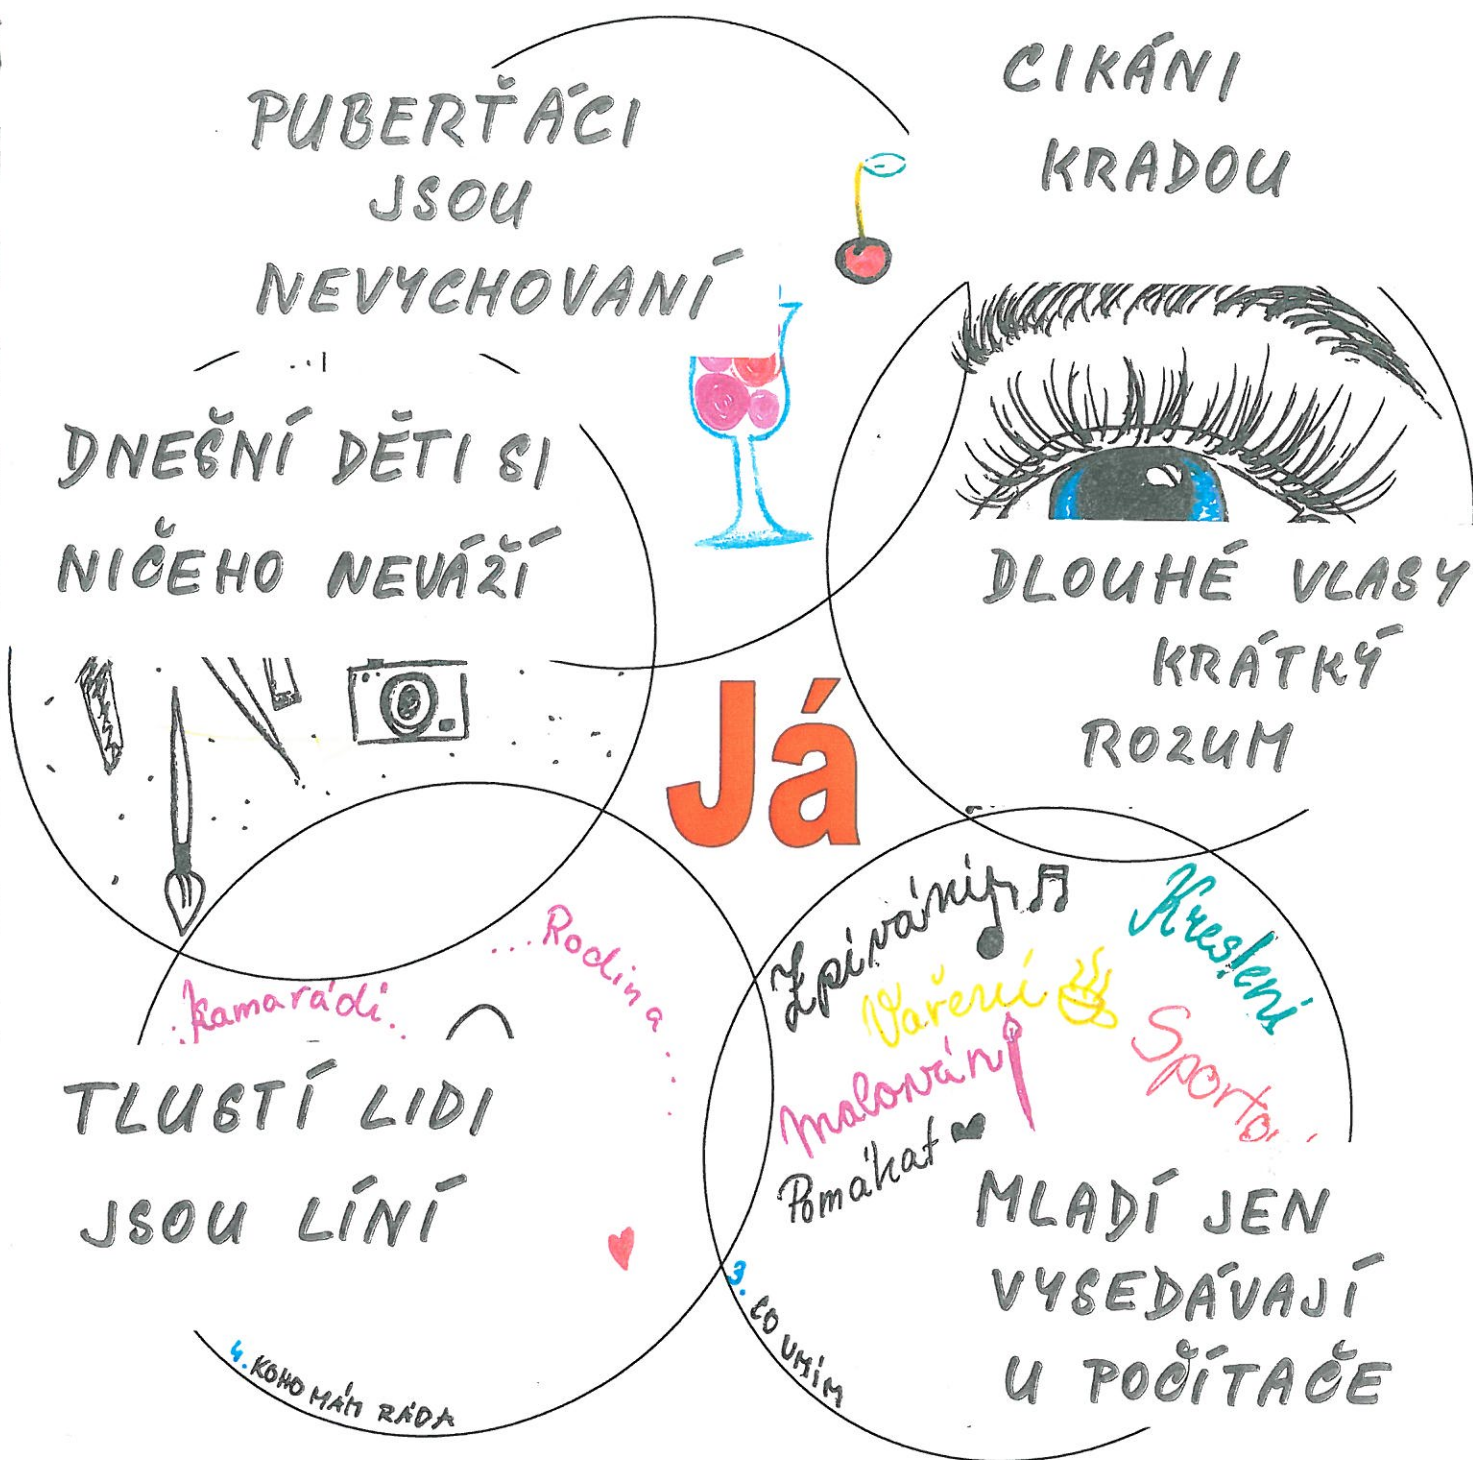 PUBERŤÁCI
JSOU
NEVYCHOVANÍ
CIKÁNI
KRADOU
DNEŠNÍ DĚTI SI
NIČEHO NEVÁŽÍ
DLOUHÉ VLASY
KRÁTKÝ
ROZUM
Já
...Rodina...
.kamarádi..
TLUSTÍ LIDI
JSOU LÍNÍ
4. KOHO MÁM RÁDA
Zpívání
Kreslení
Vaření
Malování
Pomáhat
MLADÍ JEN
VYSEDÁVAJÍ
U POČÍTAČE
3. CO UMÍM